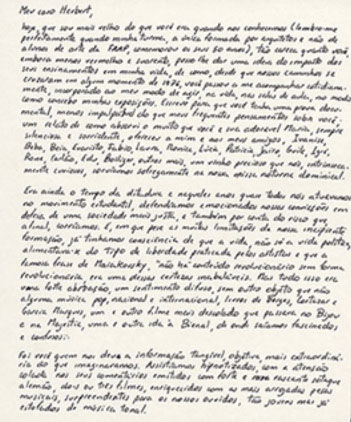 Meu caro Herbert,
hoje, que sou mais velho do que você era quando nos conhecemos (lembro-me
perfeitamente quando minha turma, a única formada por arquitetos e não de
alunos de arte da FAAP, comemorou os seus 50 anos), tão careca quanto você,
embora menos vermelho e suarento, posso lhe dar uma ideia do impacto dos
seus ensinamentos em minha vida, de como, desde que nossos caminhos se
cruzaram em algum momento de 1976, você passou a me acompanhar cotidiana-
mente, incorporado ao meu modo de agir, na vida, nas salas de aula, no modo
como concebo minhas exposições. Escrevo para que você tenha uma prova docu-
mental, menos impalpável do que meus frequentes pensamentos sobre você:
um relato de como absorvi o muito que você e sua adorável Maria, sempre
silenciosa e sorridente, ofereceu a mim e aos meus amigos, Ivanise,
Beba, Beia, Evaristo, Fabio, Laura, Monica, Lúcia, Patricia, Jairo, Gordo, Lygia,
Rosa, Carlão, Edu, Rodrigo, outros mais, um vinho precioso que nós, intrinseca-
mente curiosos, sorvíamos sofregamente na nossa missa noturna dominical.
Era ainda o tempo da ditadura e naqueles anos quase todos nós atuávamos
no movimento estudantil, defendíamos emocionados nossas convicções em
defesa de uma sociedade mais justa, e também por conta do risco que
afinal, corríamos. E, em que pese as muitas limitações da nossa incipiente
formação, já tínhamos consciência de que a vida, não só a vida política,
alimentava-se do tipo de liberdade praticada pelos artistas e que a
famosa frase de Maiakovsky, "não há conteúdo revolucionário sem forma
revolucionária era uma dessas certezas inabaláveis. Mas tudo isso era
uma bela abstração, um sentimento difuso, sem outro objeto que não
alguma música pop, nacional e internacional, livros de Borges, Cortazar e
Garcia Marques, um e outro filme mais descolado que passava no Bijou
e na Majestic, uma e outra ida à Bienal, de onde saíamos fascinados
e confusos.
Foi você quem nos deu a informação tangível, objetiva, mais extraordiná-
ria do que imaginávamos. Assistíamos hipnotizados, com a atenção
colada nos seus comentários emitidos com forte e rascante sotaque
alemão, dois ou três filmes, enriquecidos com as mais arrojadas peças
musicais, surpreendentes para os nossos ouvidos, tão jovens mas já
estiolados de música tonal.